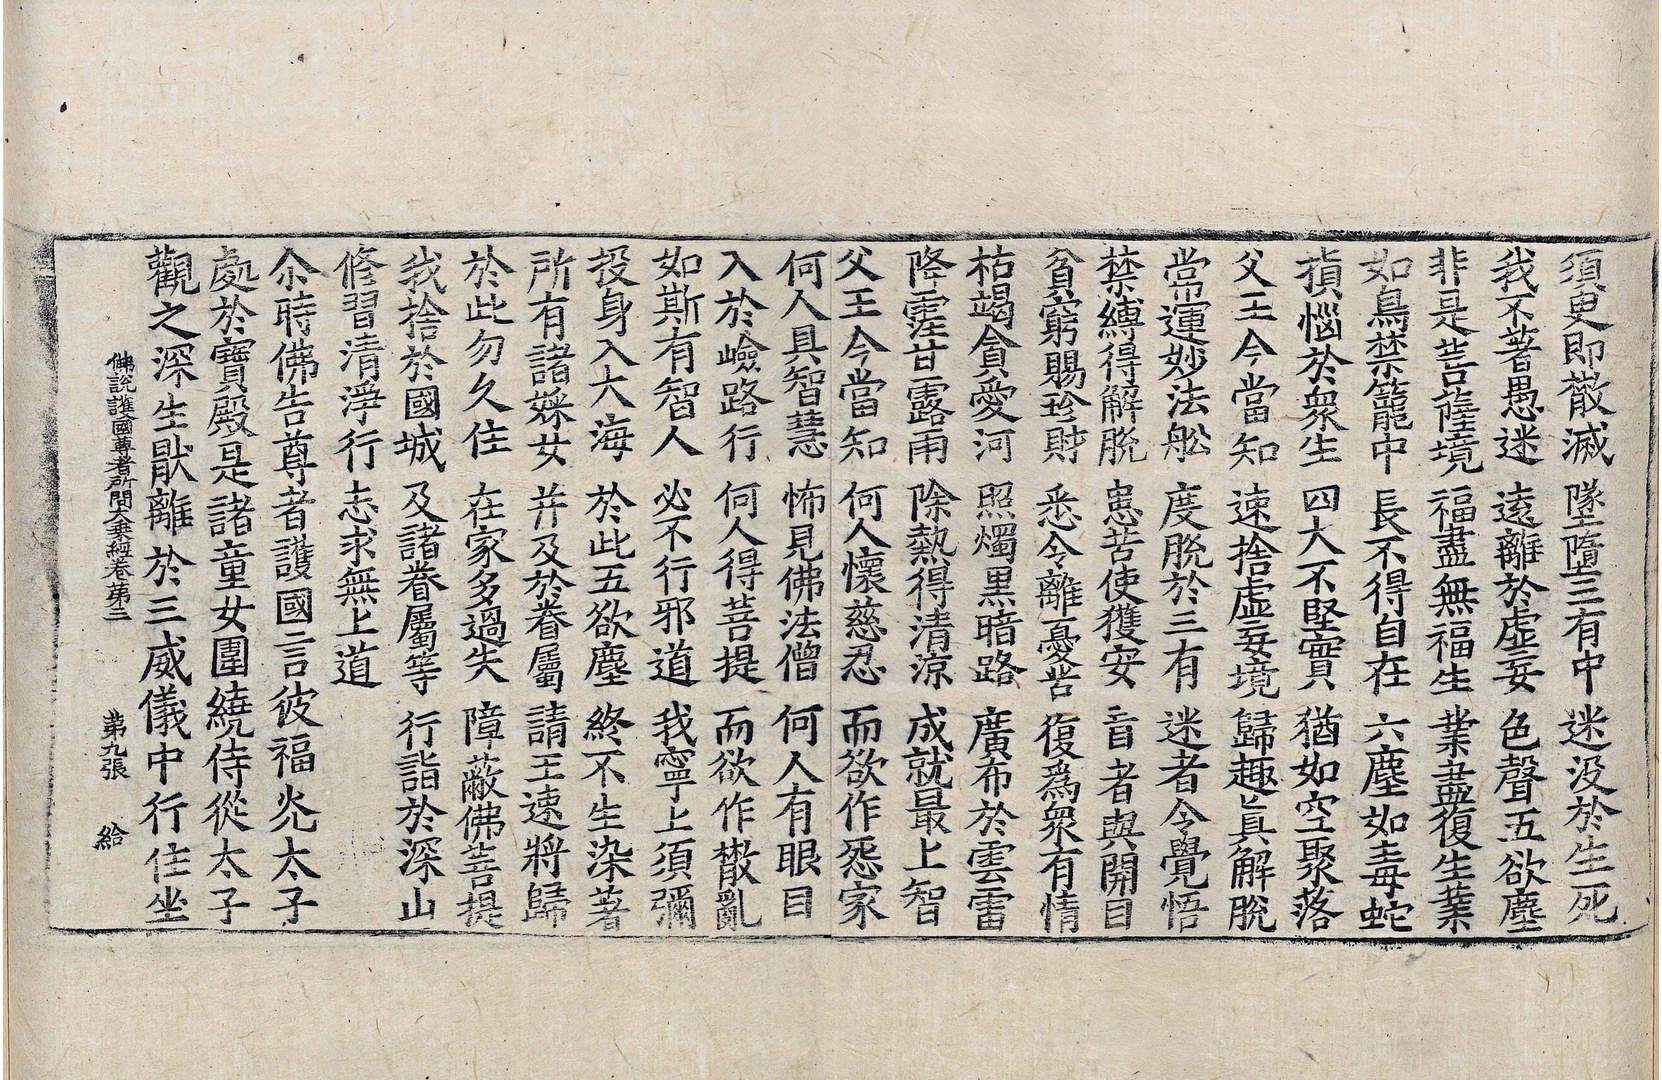 須臾即散滅 墜墮三有中 迷没於生死
我不著愚迷 遠離於虛妄 色聲五欲塵
非是菩薩境 福盡無福生 業盡復生業
如鳥禁籠中 長不得自在 六塵如毒蛇
損惱於衆生 四大不堅實 猶如空聚落
父王今當知 速捨虛妄境 歸趣真解脫
常運妙法舩 度脫於三有 迷者令覺悟
禁縛得解脫 患苦使獲安 盲者與開目
貧窮賜珍財 悉令離憂苦 復爲衆有情
枯竭貪愛河 照燭黒暗路 廣布於雲雷
降霔甘露雨 除熱得清涼 成就最上智
父王今當知 何人懷慈忍 而欲作惌家
何人具智慧 怖見佛法僧 何人有眼目
入於嶮路行 何人得菩提 而欲作散亂
如斯有智人 必不行邪道 我寧上須彌
投身入大海 於此五欲塵 終不生染著
所有諸婇女 并及於眷屬 請王速將歸
於此勿久住 在家多過失 障蔽佛菩提
我捨於國城 及諸眷屬等 行詣於深山
修習清淨行 志求無上道
尒時佛告尊者護國言彼福光太子
處於寶殿是諸童女圍繞侍從太子
觀之深生猒離於三威儀中行住坐
佛說護國尊者所問大乘經卷第三 第九張 給